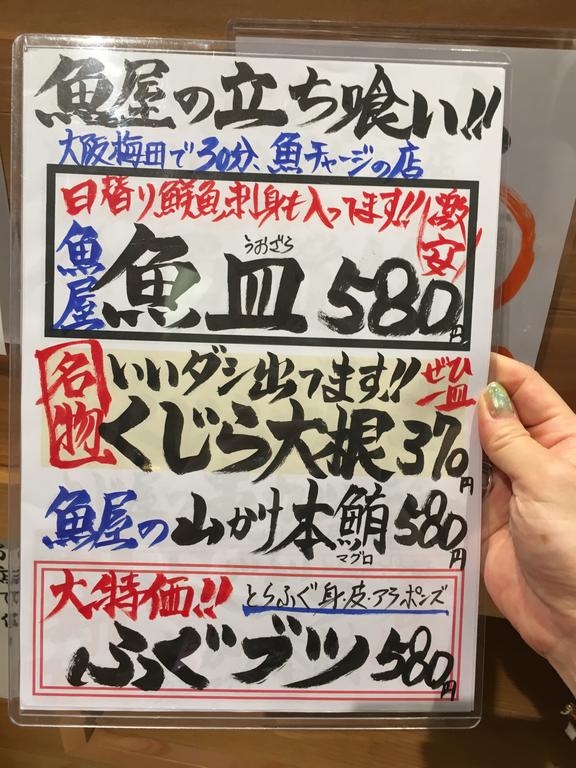 魚屋の立ち喰い!!
大阪梅田で30分、魚チャージの店
日替り鮮魚刺身も入ってます!!
激安
魚屋
うおざら
魚皿 580円
名物
いいダシ出てます!!
ぜひ一皿
くじら大根 370円
魚屋の山かけ本鮪 580円
マグロ
大特価!! とらふぐ身・皮・アラポンズ
ふぐブツ 580円